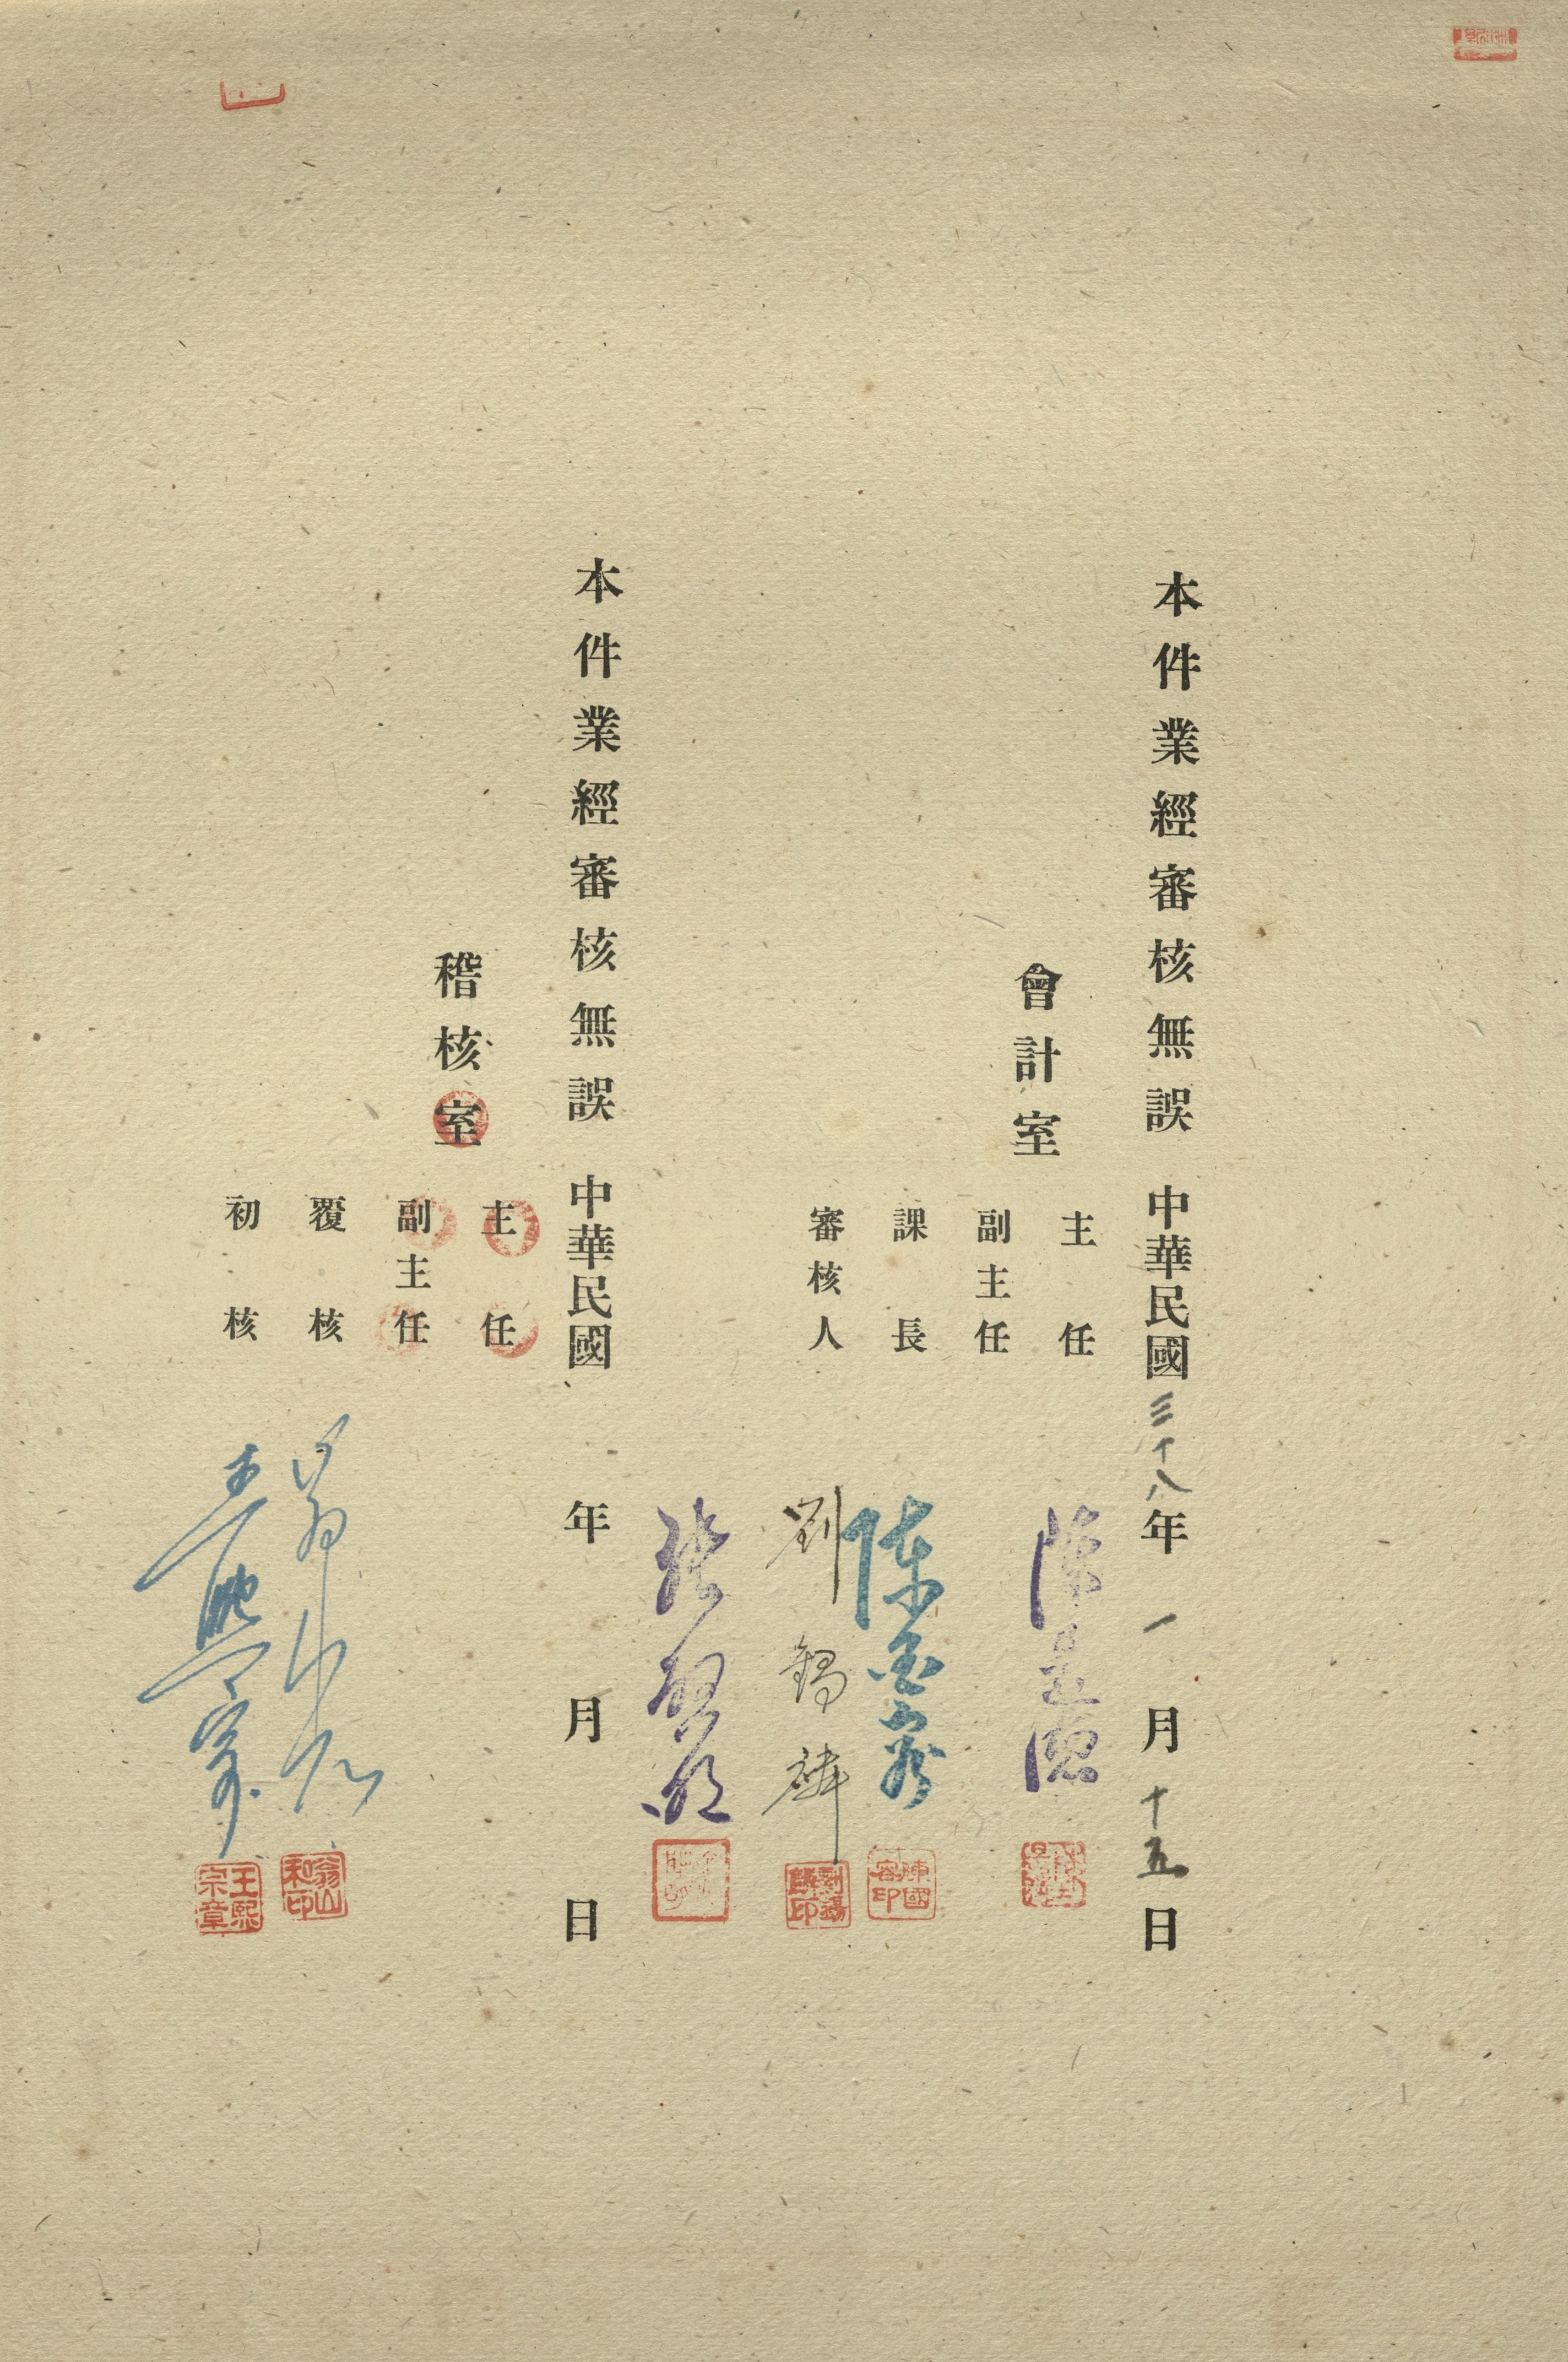 本件業經審核無誤 中華民國三十八年一月十五日
會計室
主任
副主任
課長 陳國容
陳國容印
審核人 劉錫麟
劉錫麟印
本件業經審核無誤 中華民國 年 月 日
稽核室
主任
副主任
覆核 翁山和
翁山和印
初核 王熙宗
王熙宗章